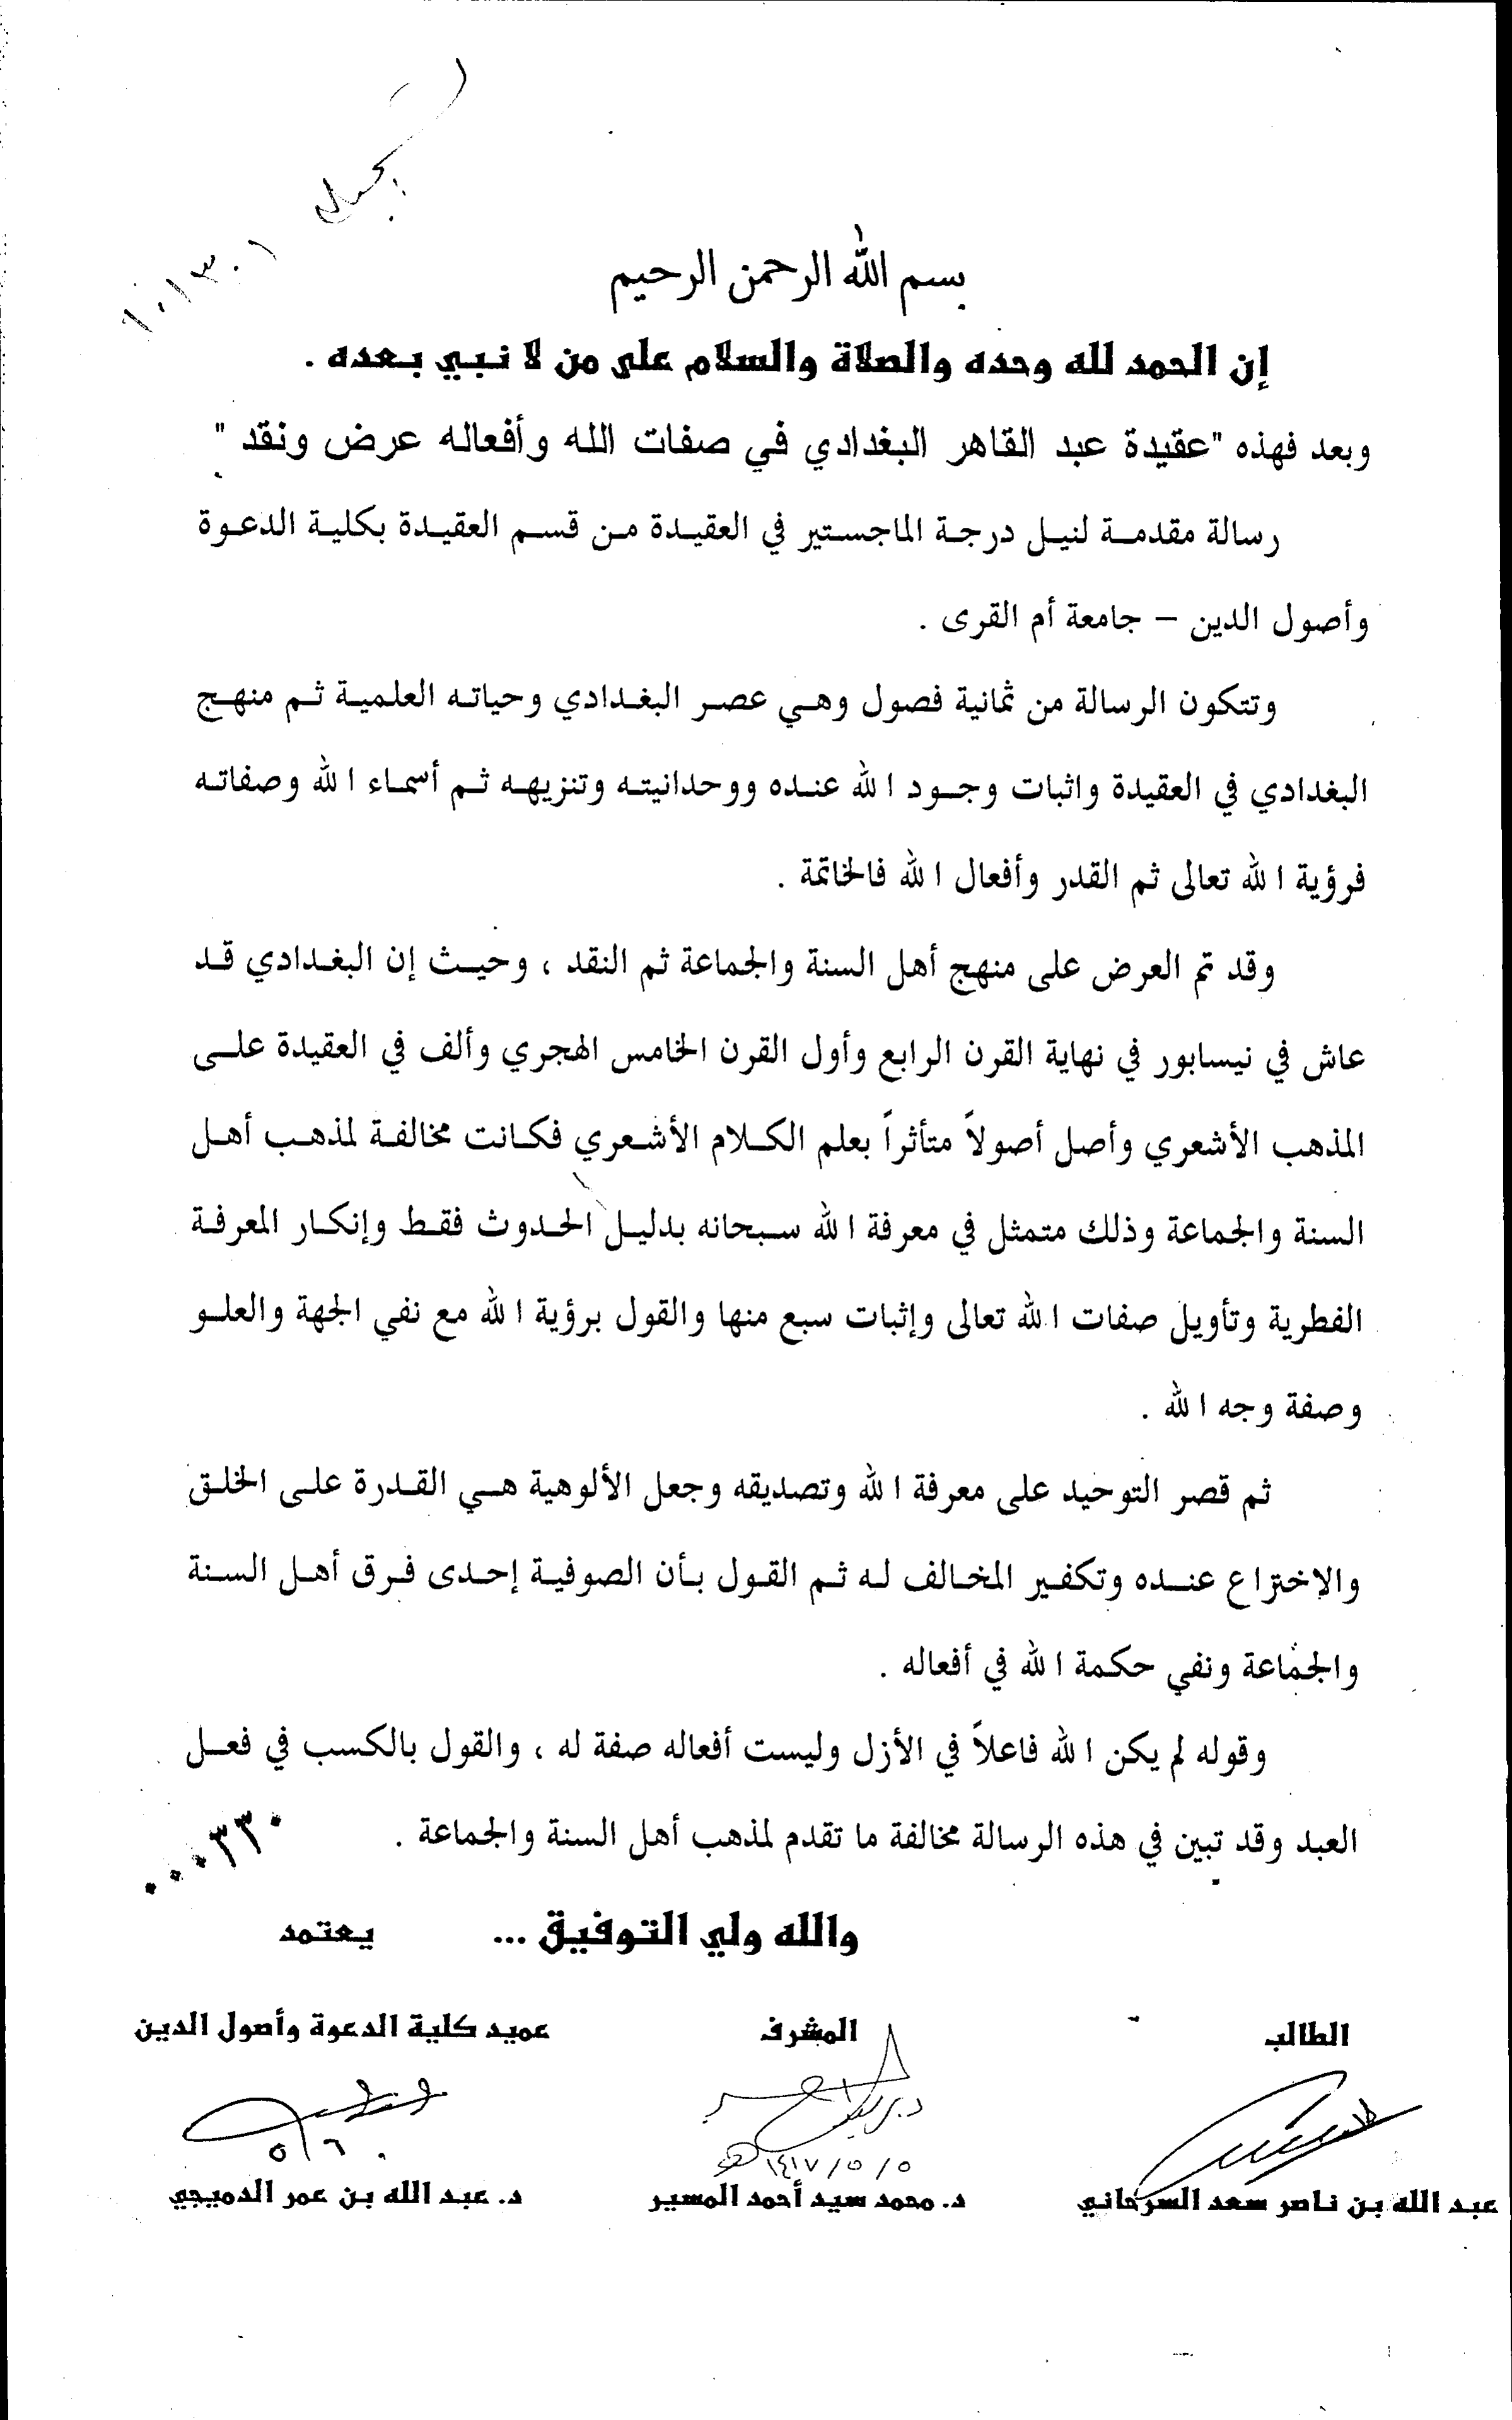 ١٠١٣٠١
بسم الله الرحمن الرحيم
إن الحمد لله وحده والصلاة والسلام على من لا نبي بعده .
وبعد فهذه "عقيدة عبد القاهر البغدادي في صفات الله وأفعاله عرض ونقد "
رسالة مقدمة لنيل درجة الماجستير في العقيدة من قسم العقيدة بكلية الدعوة
وأصول الدين – جامعة أم القرى .
وتتكون الرسالة من ثمانية فصول وهي عصر البغدادي وحياته العلمية ثم منهج
البغدادي في العقيدة واثبات وجود الله عنده ووحدانيته وتنزيهه ثم أسماء الله وصفاته
فرؤية الله تعالى ثم القدر وأفعال الله فالخاتمة .
وقد تم العرض على منهج أهل السنة والجماعة ثم النقد ، وحيث إن البغدادي قد
عاش في نيسابور في نهاية القرن الرابع وأول القرن الخامس الهجري وألف في العقيدة على
المذهب الأشعري وأصل أصولاً متأثراً بعلم الكلام الأشعري فكانت مخالفة لمذهب أهل
السنة والجماعة وذلك متمثل في معرفة الله سبحانه بدليل الحدوث فقط وإنكار المعرفة
الفطرية وتأويل صفات الله تعالى وإثبات سبع منها والقول برؤية الله مع نفي الجهة والعلو
وصفة وجه الله .
ثم قصر التوحيد على معرفة الله وتصديقه وجعل الألوهية هي القدرة على الخلق
والاختراع عنده وتكفير المخالف له ثم القول بأن الصوفية إحدى فرق أهل السنة
والجماعة ونفي حكمة الله في أفعاله .
وقوله لم يكن الله فاعلاً في الأزل وليست أفعاله صفة له ، والقول بالكسب في فعل
العبد وقد تبين في هذه الرسالة مخالفة ما تقدم لمذهب أهل السنة والجماعة .
٠٠٠٣٣٠
والله ولي التوفيق ... يعتمد
الطالب المشرف عميد كلية الدعوة وأصول الدين
٥/٥/١٤١٧هـ ٥/٦
عبد الله بن ناصر سعد السرحاني د. محمد سيد أحمد المسير د. عبد الله بن عمر الدميجي